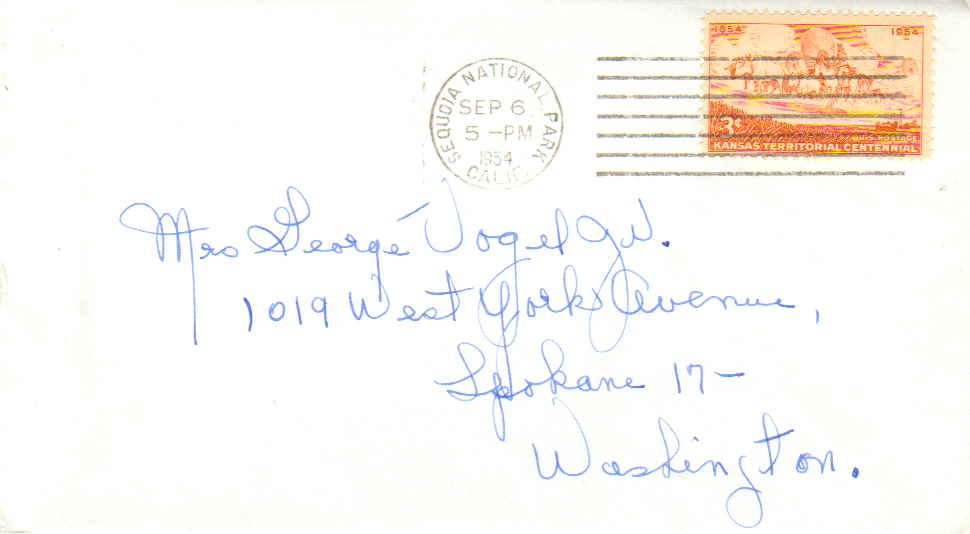 1854 1954
SEQUOIA NATIONAL PARK
SEP 6
5 -PM
1954
CALIF.
3¢ U.S. POSTAGE
KANSAS TERRITORIAL CENTENNIAL
Mrs George Vogel Jr.
1019 West York Avenue,
Spokane 17-
Washington.